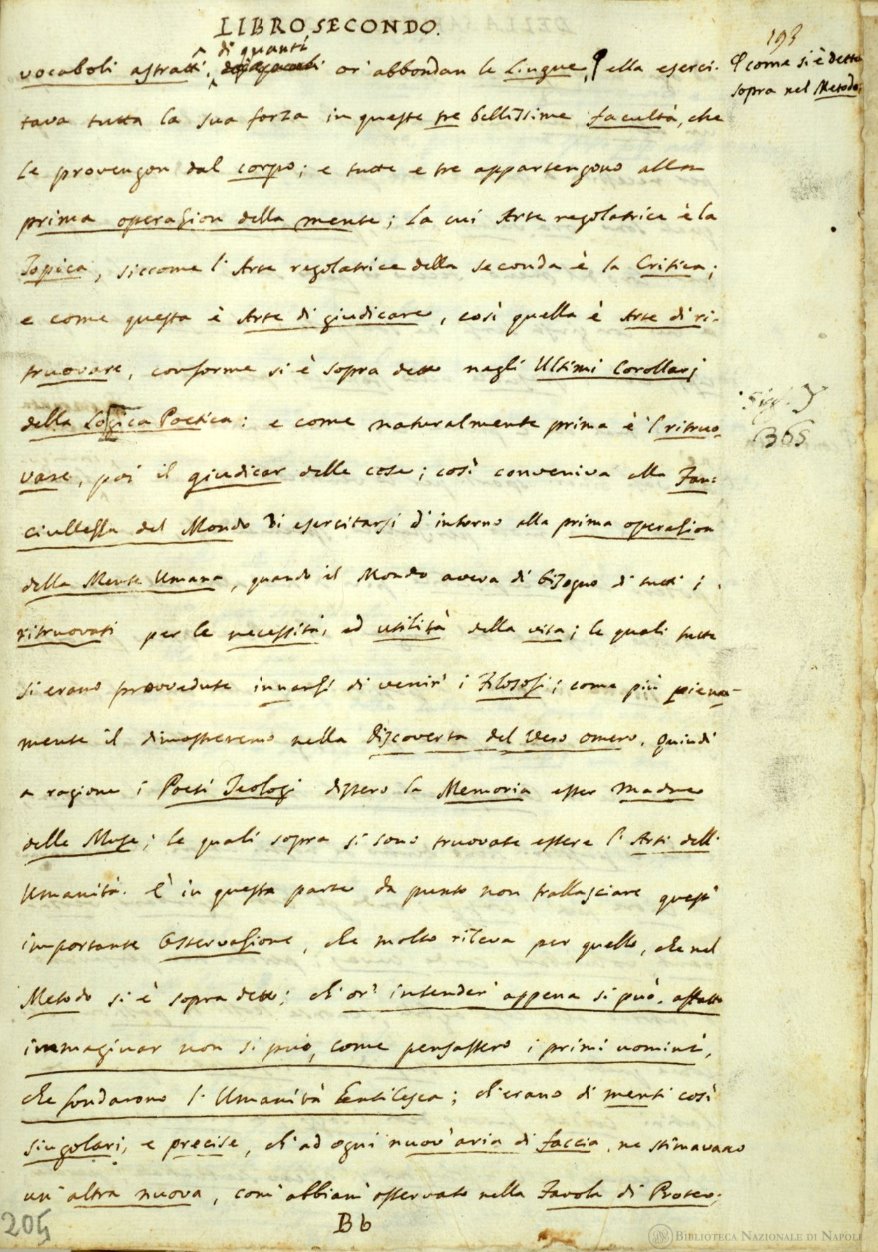 LIBRO SECONDO.
193
di quanti
vocaboli astratti, or' abbondan le Lingue, ella eserci-
φ come si è detto
sopra nel Metodo,
tava tutta la sua forza in queste tre bellissime facultà, che
le provengon dal corpo; e tutte e tre appartengono alla
prima operazion della mente; la cui Arte regolatrice è la
Topica, siccome l' Arte regolatrice della seconda è la Critica;
e come questa è Arte di giudicare, così quella è Arte di ri-
truovare, conforme si è sopra detto negli Ultimi Corollarj
della Logica Poetica: e come naturalmente prima è 'l ritruo-
365
vare, poi il giudicar delle cose; così conveniva alla Fan-
ciullezza del Mondo di esercitarsi d' intorno alla prima operazion
della Mente Umana, quando il Mondo aveva di bisogno di tutti i
ritruovati per le necessità, ed utilità della vita; le quali tutte
si erano provvedute innanzi di venir' i Filosofi; come più piena-
mente il dimostreremo nella Discoverta del Vero Omero. Quindi
a ragione i Poeti Teologi dissero la Memoria esser madre
delle Muse; le quali sopra si sono truovate essere l' Arti dell'
Umanità. E' in questa parte da punto non trallasciare quest'
importante Osservazione, che molto rileva per quello, che nel
Metodo si è sopra detto; ch' or' intender' appena si può, affatto
immaginar non si può, come pensassero i primi uomini,
che fondarono l' Umanità Gentilesca; ch' erano di menti così
singolari, e precise, ch' ad ogni nuov' aria di faccia, ne stimavano
un' altra nuova, com' abbiam' osservato nella Favola di Proteo;
205
Bb
BIBLIOTECA NAZIONALE DI NAPOLI